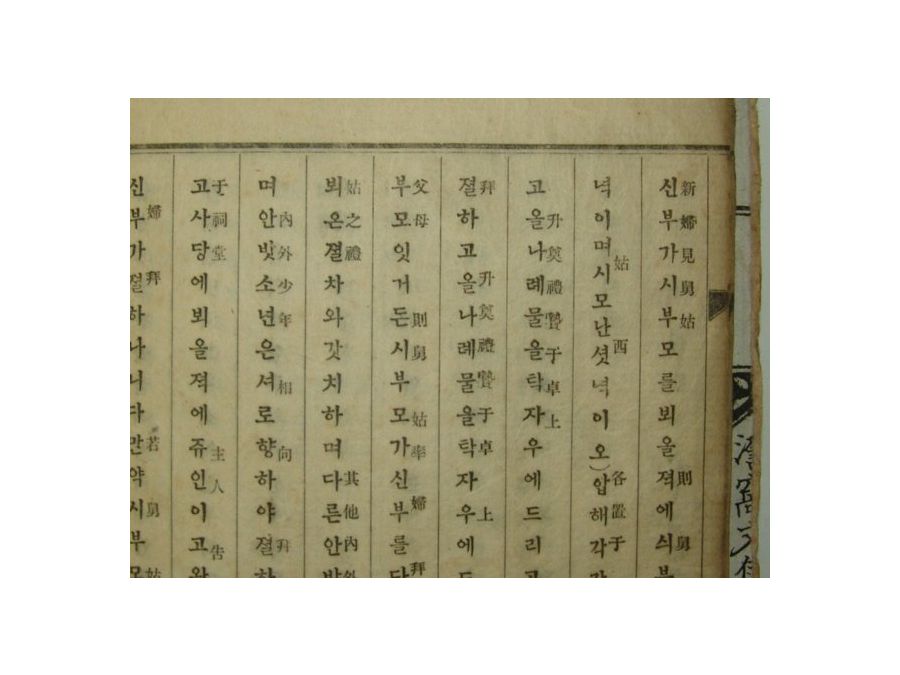 신부가시부모를뵈올젹에싀부
新婦見舅姑則舅
녁이며시모난셧녁이오)압해각각
姑西各置于
고올나례물을탁자우에드리고
升奠禮贄于卓上
졀하고올나례물을탁자우에드
拜升奠禮贄于卓上
부모잇거든시부모가신부를다
父母則舅姑率婦拜
뵈온졀차와갓치하며다른안밧
姑之禮其他內外
며안밧소년은셔로향하야졀하
內外少年相向拜
고사당에뵈올젹에쥬인이고왈
于祠堂主人告
신부가졀하나니다만약시부모
婦拜若舅姑